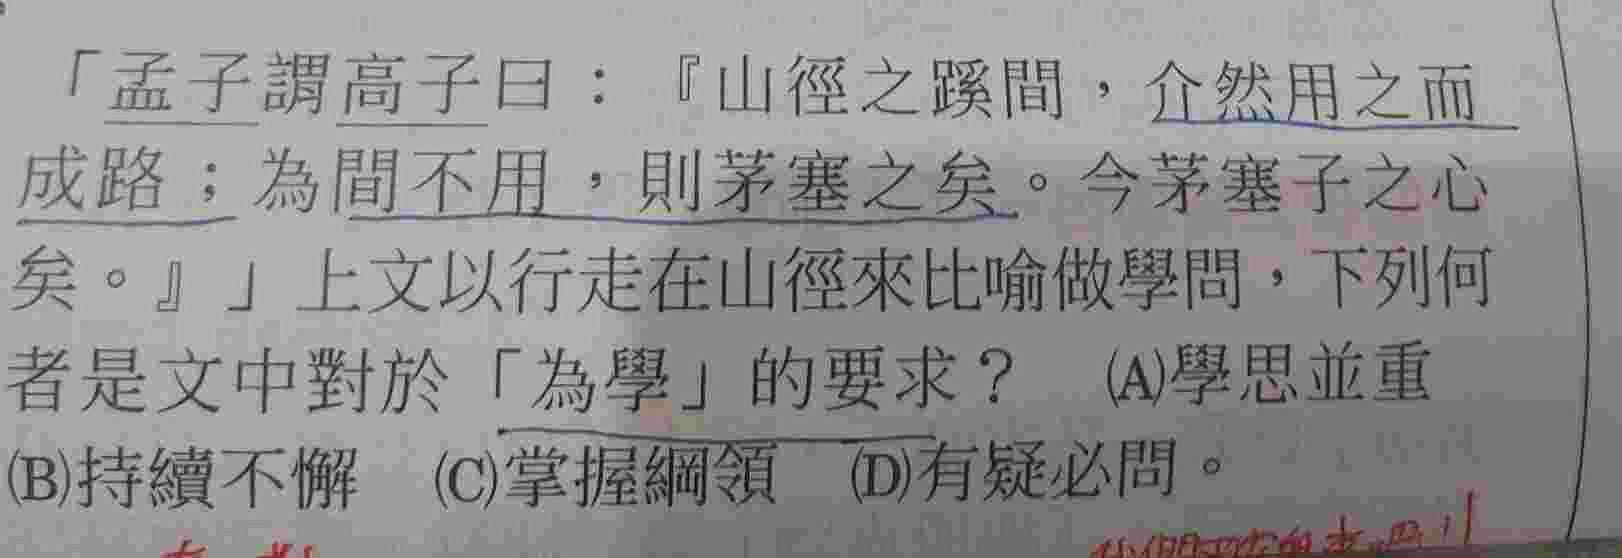 「孟子謂高子曰：『山徑之蹊間，介然用之而
成路；為間不用，則茅塞之矣。今茅塞子之心
矣。』」上文以行走在山徑來比喻做學問，下列何
者是文中對於「為學」的要求？　(A)學思並重
(B)持續不懈　(C)掌握綱領　(D)有疑必問。